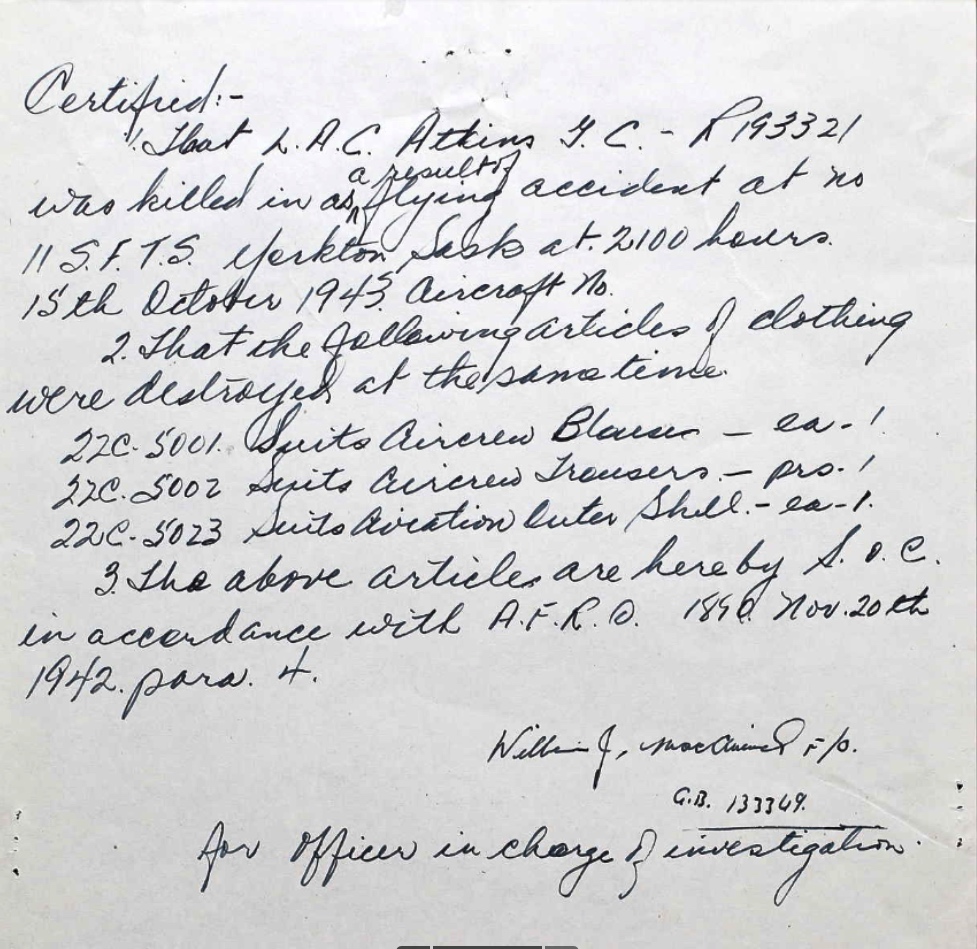 Certified:-
1. That L.A.C. Atkins G. C. - R193321
a result of
was killed in as flying accident at no
11 S.F.T.S. Yorkton Sask at. 2100 hours.
15th October 1943 Aircraft No.
2. That the following articles of clothing
were destroyed at the same time.
22C-5001. Suits Aircrew Blouse - ea-1
22C.5002 Suits Aircrew Trousers - prs.1
22C-5023 Suits Aviation Outer Shell.- ea-1.
3. The above articles are hereby S.O.C.
in accordance with A.F.R.O. Nov. 20th
1942. para. 4.
J. F/O.
133349.
for officer in charge of investigation.